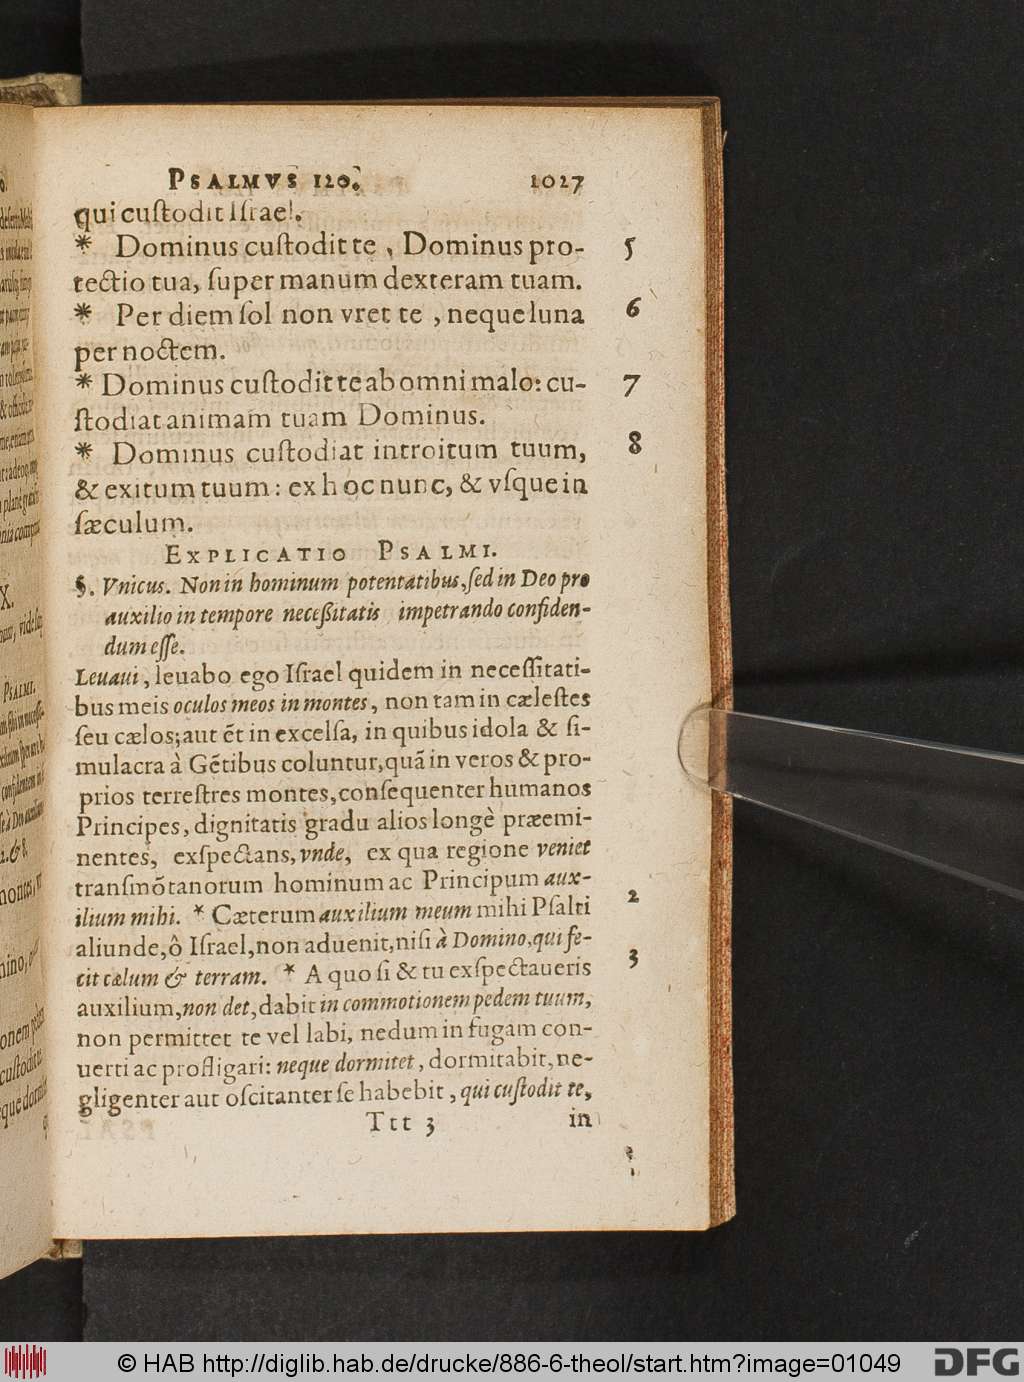 PSALMVS 120. 1027
qui cuſtodit Iſrael.
* Dominus cuſtodit te, Dominus pro- 5
tectio tua, ſuper manum dexteram tuam.
* Per diem ſol non vret te, neque luna 6
per noctem.
* Dominus cuſtodit te ab omni malo: cu- 7
ſtodiat animam tuam Dominus.
* Dominus cuſtodiat introitum tuum, 8
& exitum tuum: ex hoc nunc, & vſque in
ſæculum.
EXPLICATIO PSALMI.
§. Vnicus. Non in hominum potentatibus, ſed in Deo pro
auxilio in tempore neceßitatis impetrando confiden-
dum eſſe.
Leuaui, leuabo ego Iſrael quidem in neceſſitati-
bus meis oculos meos in montes, non tam in cæleſtes
ſeu cælos; aut ẽt in excelſa, in quibus idola & ſi-
mulacra à Gẽtibus coluntur, quã in veros & pro-
prios terreſtres montes, conſequenter humanos
Principes, dignitatis gradu alios longè præemi-
nentes, exſpectans, vnde, ex qua regione veniet
tranſmõtanorum hominum ac Principum aux-
ilium mihi. * Cæterum auxilium meum mihi Pſalti 2
aliunde, ô Iſrael, non aduenit, niſi à Domino, qui fe-
cit cælum & terram. * A quo ſi & tu exſpectaueris 3
auxilium, non det, dabit in commotionem pedem tuum,
non permittet te vel labi, nedum in fugam con-
uerti ac profligari: neque dormitet, dormitabit, ne-
gligenter aut oſcitanter ſe habebit, qui cuſtodit te,
Ttt 3 in
© HAB http://diglib.hab.de/drucke/886-6-theol/start.htm?image=01049
DFG